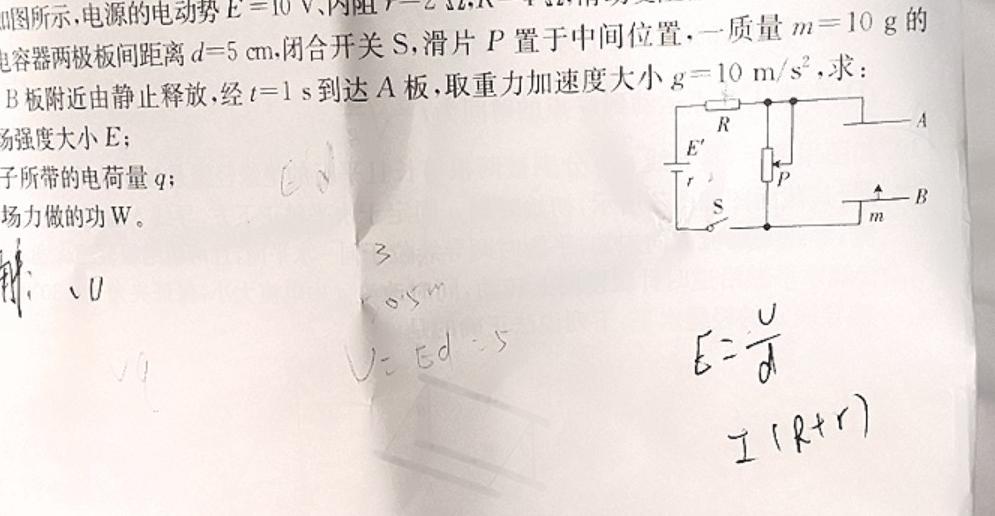 如图所示,电源的电动势E'=10 V、内阻r=2 Ω,R=4 Ω,
电容器两极板间距离d=5 cm,闭合开关S,滑片P置于中间位置,一质量m=10 g的
B板附近由静止释放,经t=1 s到达A板,取重力加速度大小g=10 m/s²,求:
场强度大小E;
子所带的电荷量q;
场力做的功W。
R
A
E'
r
P
S
B
m
Ed
解: U
3
0.5m
U=Ed=5
E=U/d
I(R+r)